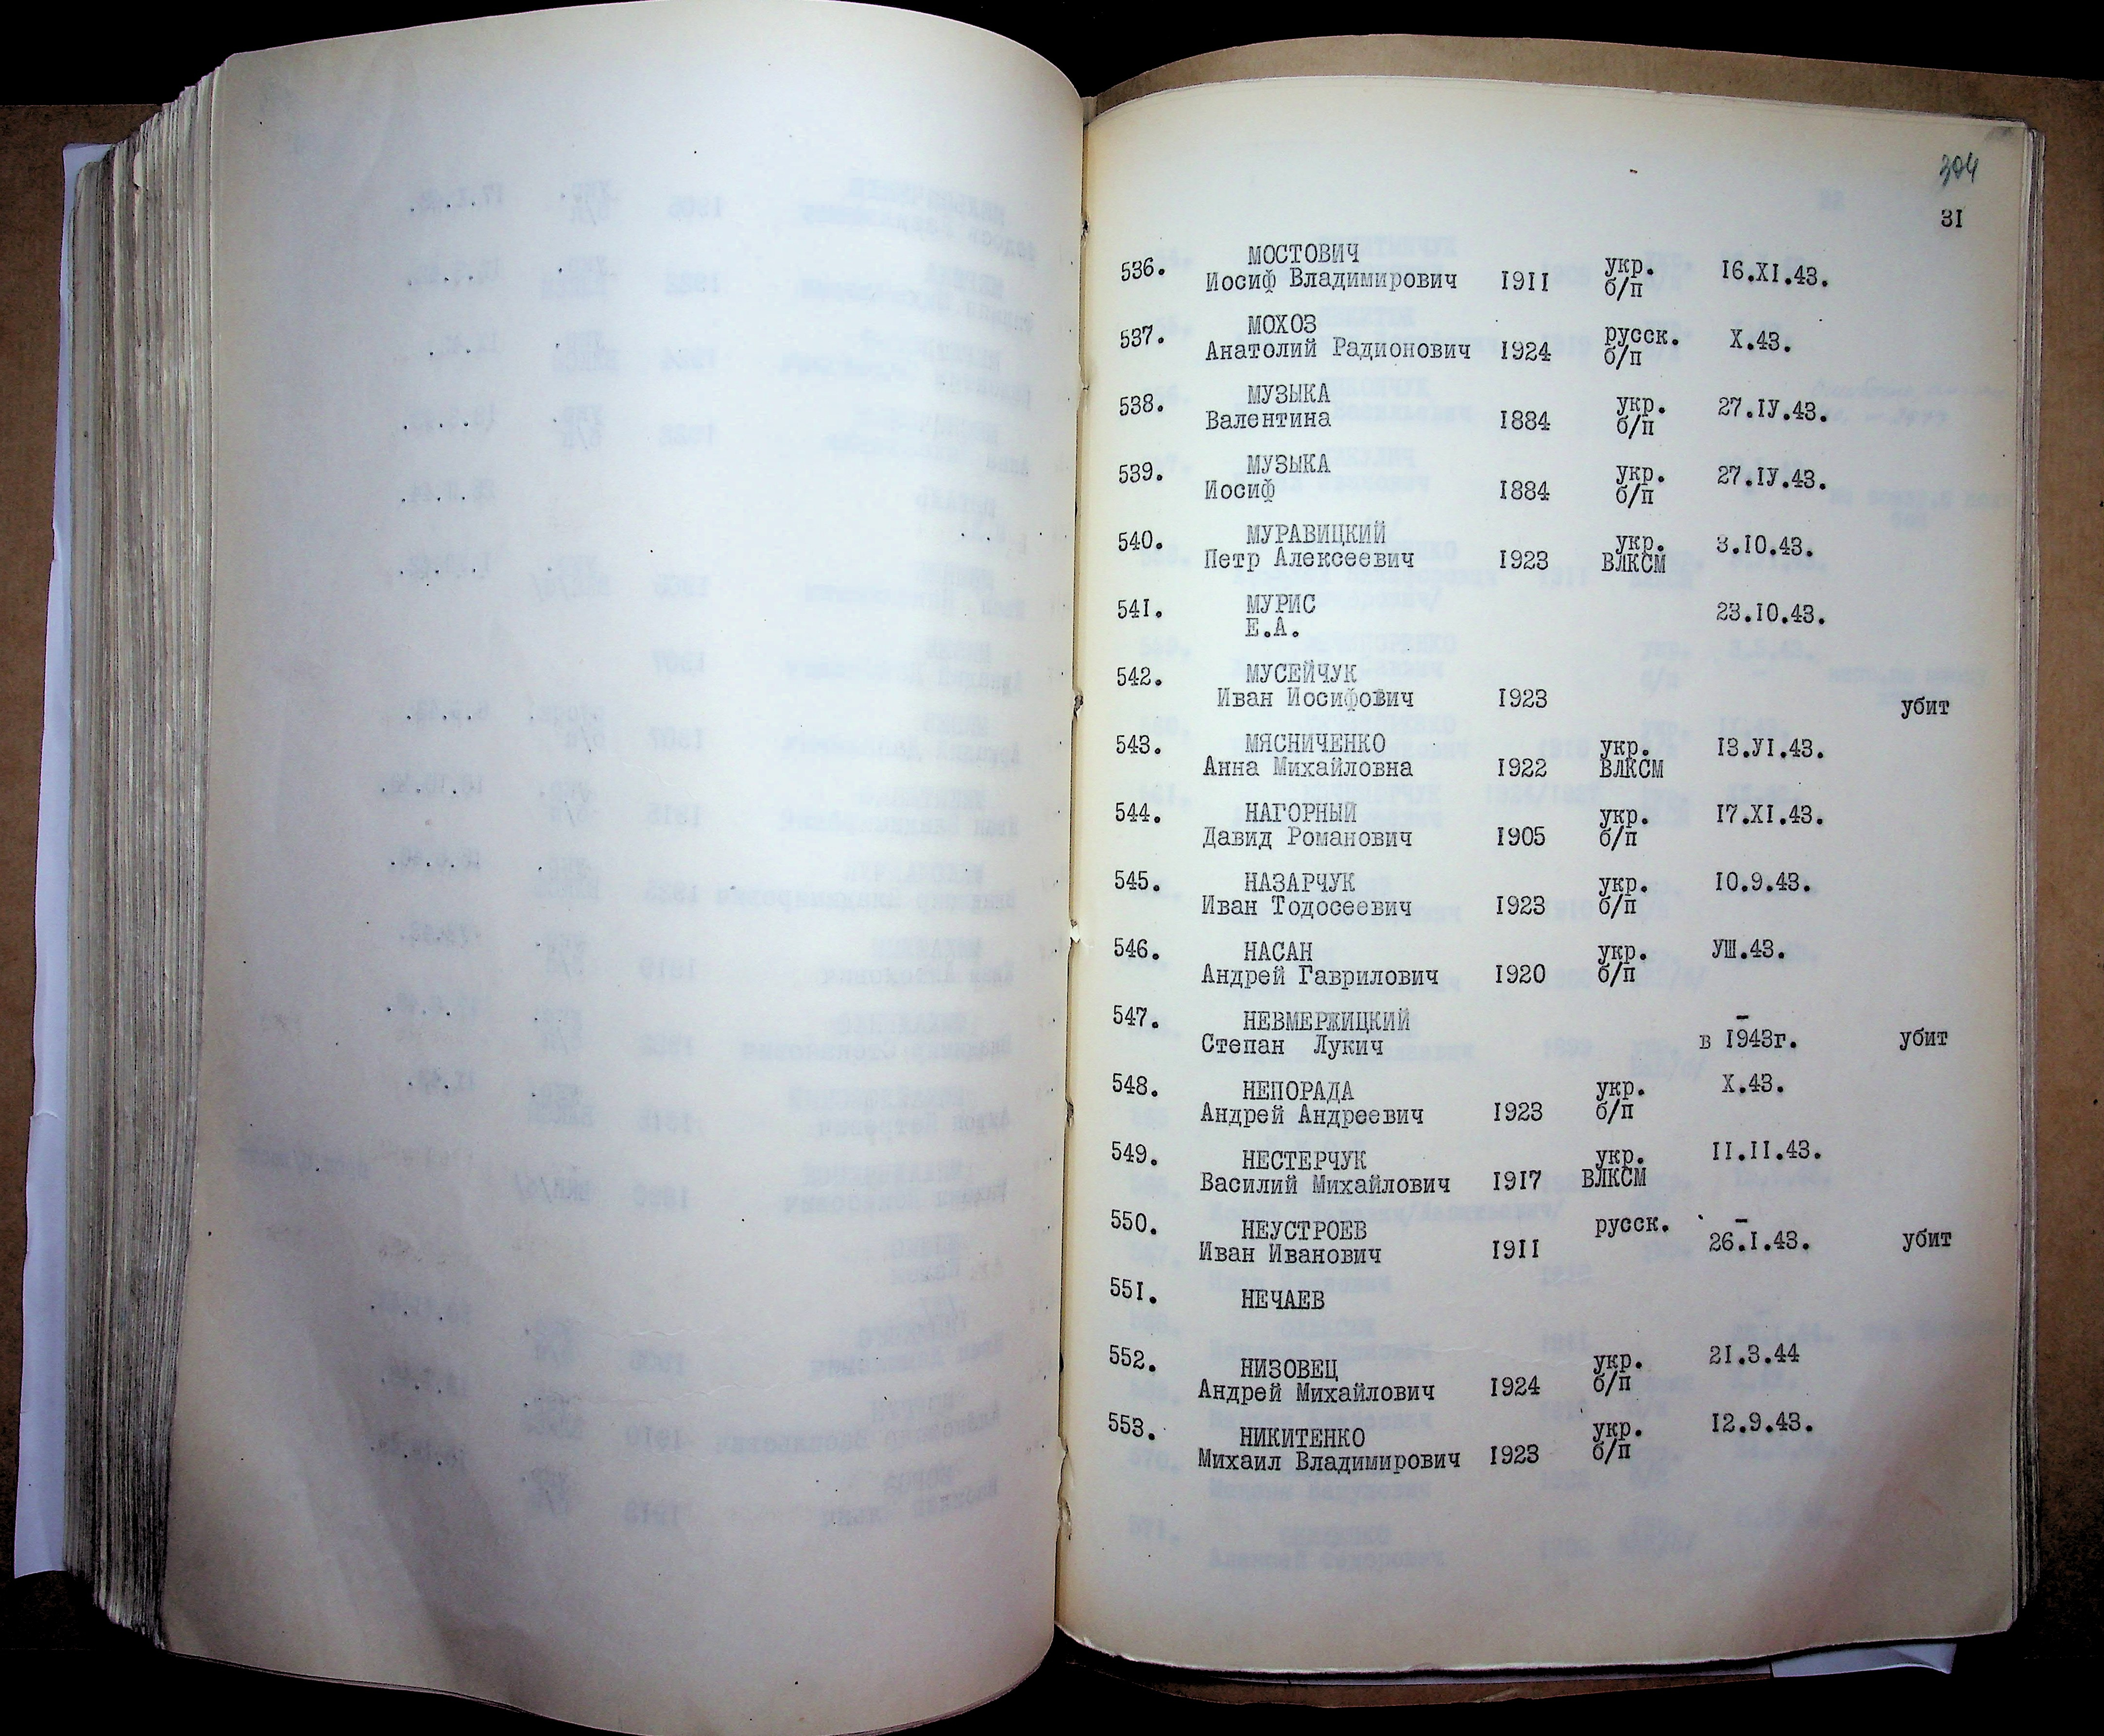 304
31
536. МОСТОВИЧ укр. 16.XI.43.
Иосиф Владимирович 1911 б/п
537. МОХОЗ русск. X.43.
Анатолий Радионович 1924 б/п
538. МУЗЫКА укр. 27.IУ.43.
Валентина 1884 б/п
539. МУЗЫКА укр. 27.IУ.43.
Иосиф 1884 б/п
540. МУРАВИЦКИЙ укр. 3.10.43.
Петр Алексеевич 1923 ВЛКСМ
541. МУРИС 23.10.43.
Е.А.
542. МУСЕЙЧУК
Иван Иосифович 1923 убит
543. МЯСНИЧЕНКО укр. 13.УI.43.
Анна Михайловна 1922 ВЛКСМ
544. НАГОРНЫЙ укр. 17.XI.43.
Давид Романович 1905 б/п
545. НАЗАРЧУК укр. 10.9.43.
Иван Тодосеевич 1923 б/п
546. НАСАН укр. УШ.43.
Андрей Гаврилович 1920 б/п
547. НЕВМЕРЖИЦКИЙ –
Степан Лукич в 1943г. убит
548. НЕПОРАДА укр. X.43.
Андрей Андреевич 1923 б/п
549. НЕСТЕРЧУК укр. 11.11.43.
Василий Михайлович 1917 ВЛКСМ
550. НЕУСТРОЕВ русск. –
Иван Иванович 1911 26.1.43. убит
551. НЕЧАЕВ
552. НИЗОВЕЦ укр. 21.3.44
Андрей Михайлович 1924 б/п
553. НИКИТЕНКО укр. 12.9.43.
Михаил Владимирович 1923 б/п